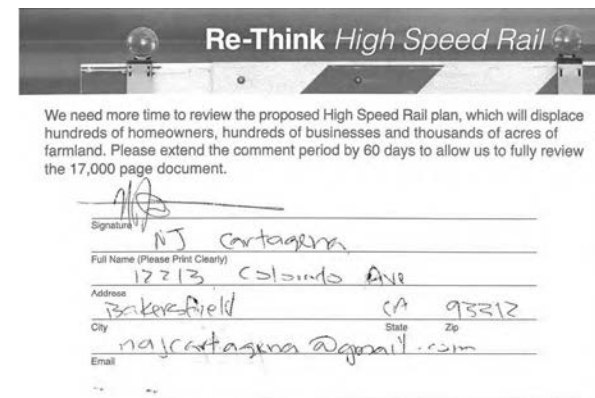 Re-Think High Speed Rail
We need more time to review the proposed High Speed Rail plan, which will displace
hundreds of homeowners, hundreds of businesses and thousands of acres of
farmland. Please extend the comment period by 60 days to allow us to fully review
the 17,000 page document.
Signature
NJ Cartagena
Full Name (Please Print Clearly)
12213 Colorado Ave
Address
Bakersfield CA 93312
City State Zip
najcartagena@gmail.com
Email